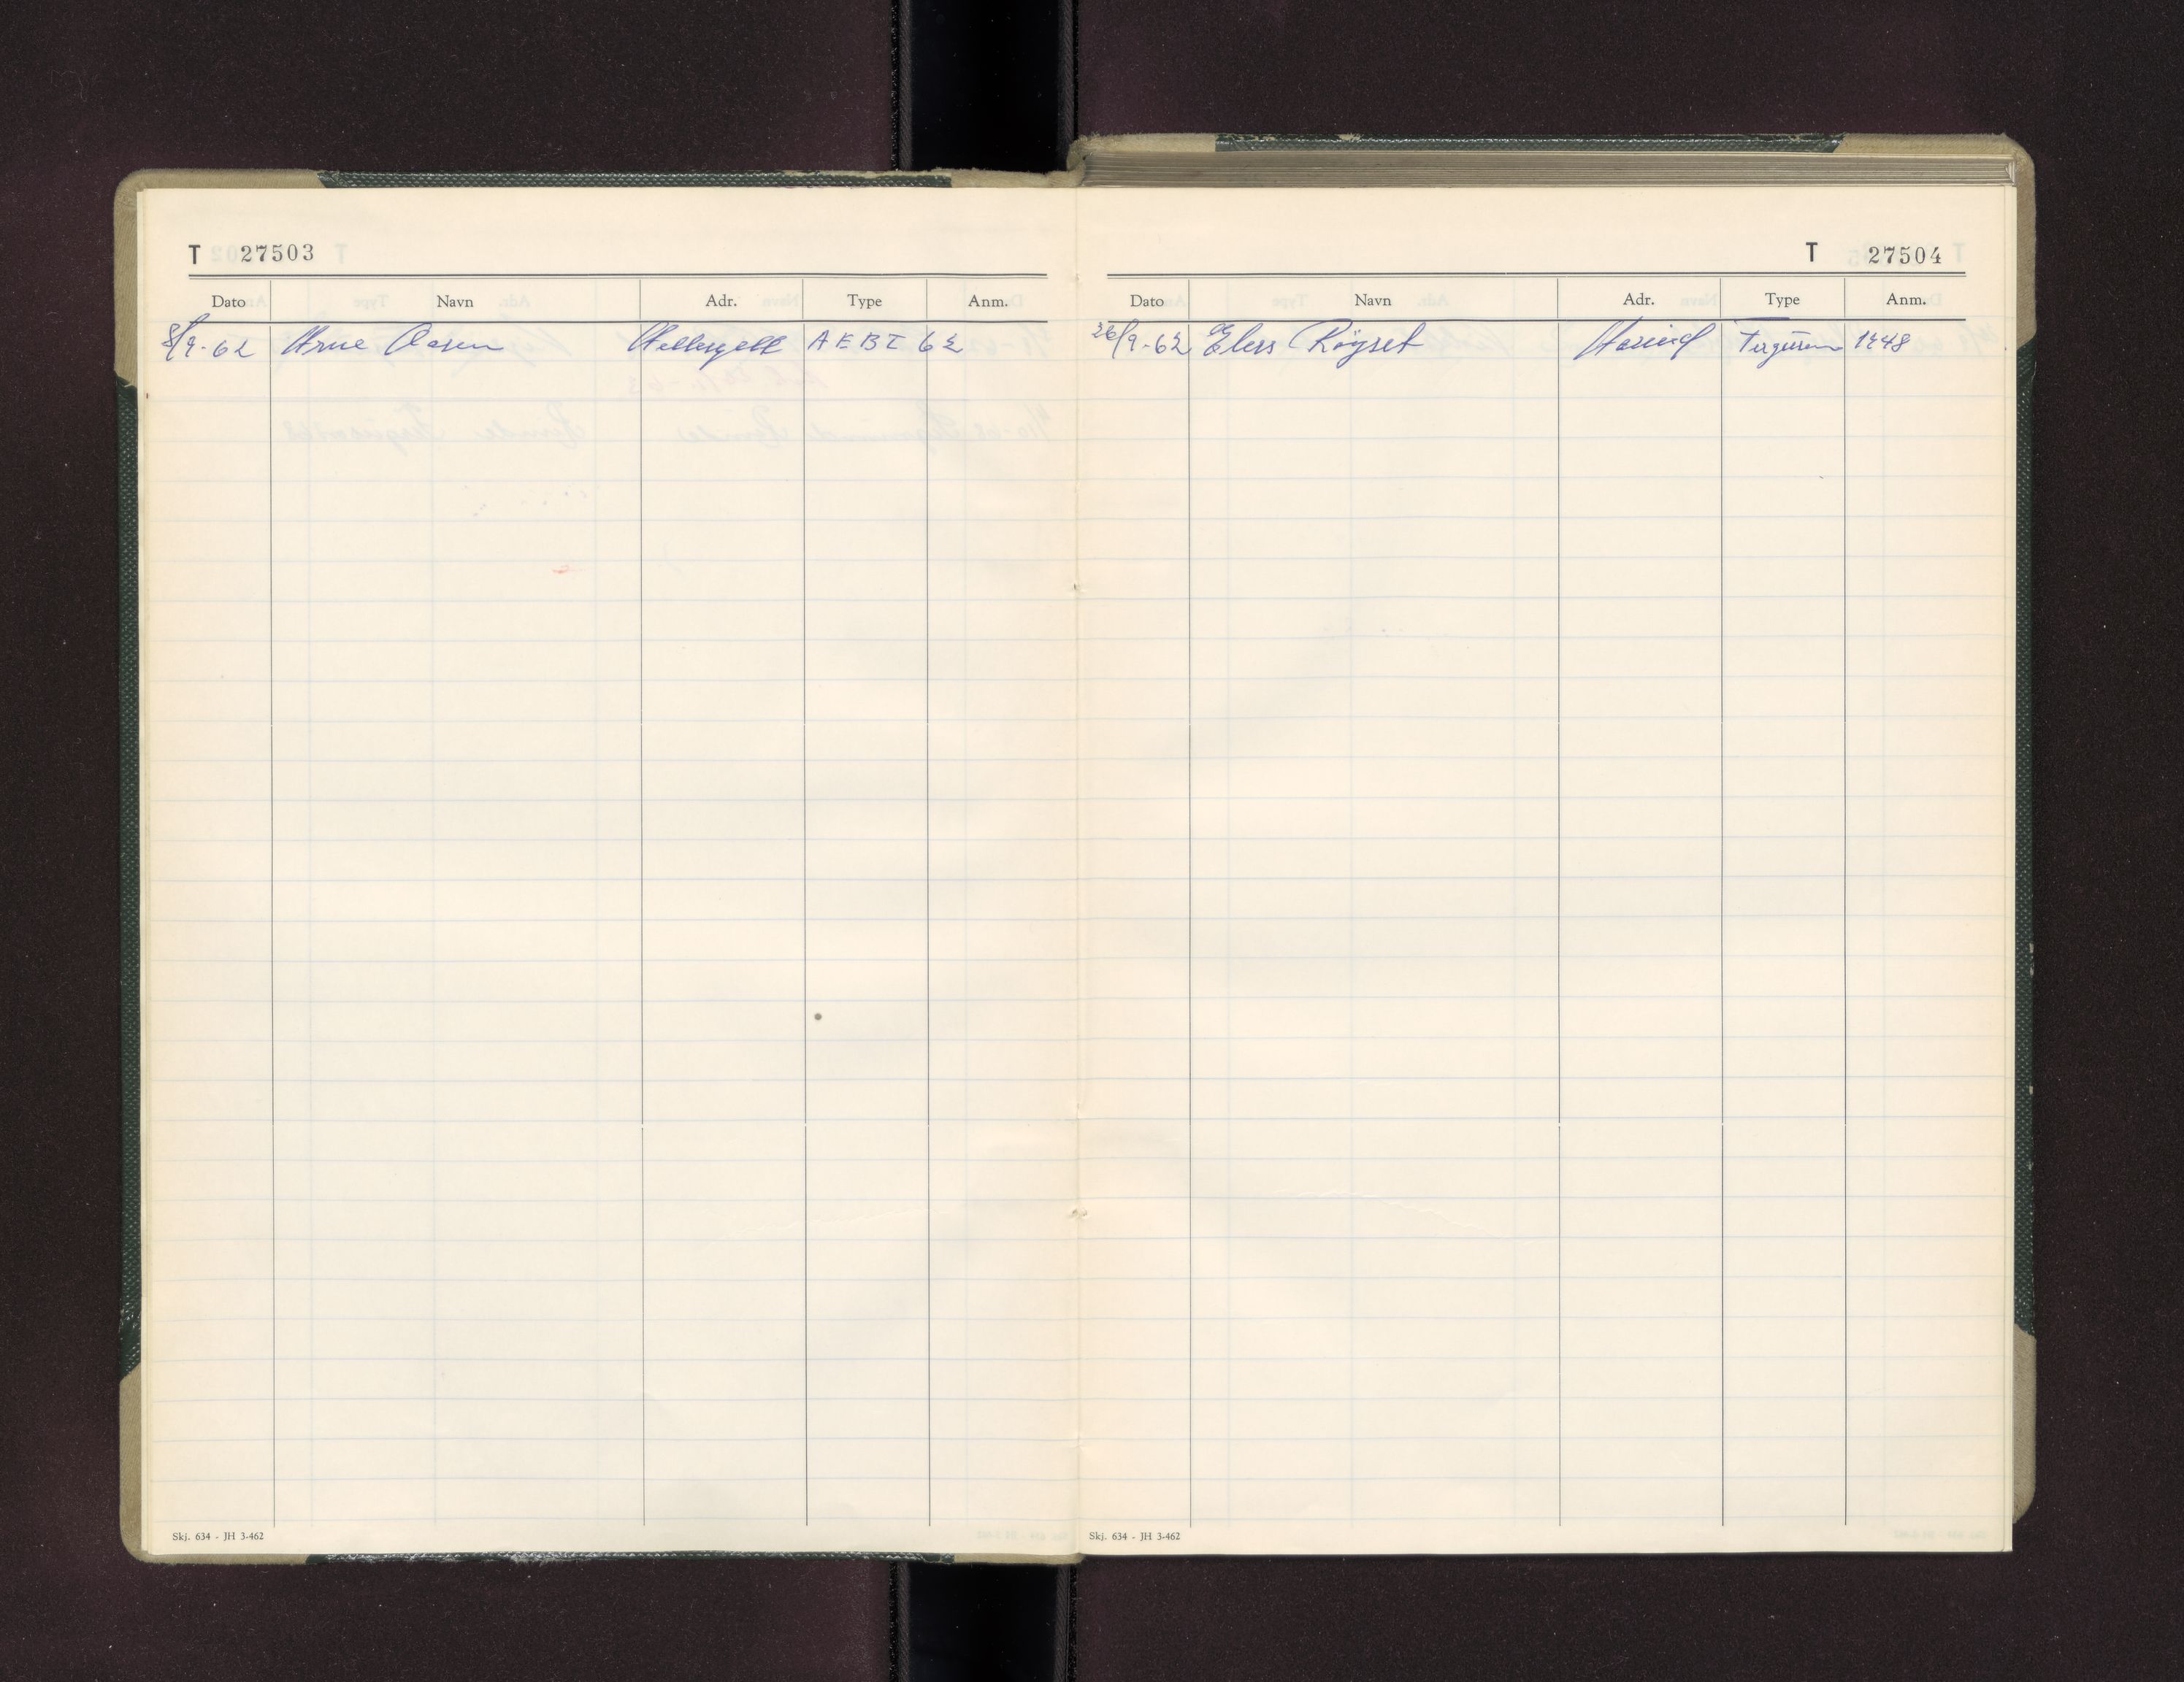 T 27503
Dato Navn Adr. Type Anm.
8/9-62 Arne Aasen AEBI 62
Skj. 634 - JH 3-462
T 27504
Dato Navn Adr. Type Anm.
26/9-62 Røyset Hareid Ferguson 1948
Skj. 634 - JH 3-462